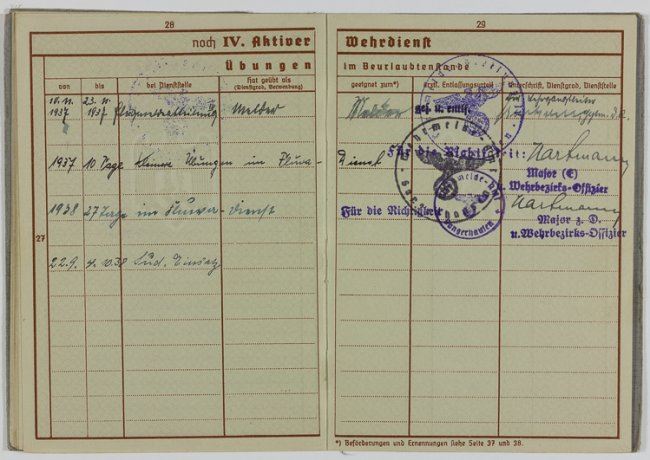 28
noch IV. Aktiver
Übungen
von
bis
bei Dienststelle
Hat geübt als
(Dienstgrad, Verwendung)
1937
23. 11.
1937
Melder
1937 10 Tage kleinere Übungen im Fluwa-
1938 27 Tage im Fluwa-dienst
27
22.9. 4.10.38 Sud. Einsatz
29
Wehrdienst
im Beurlaubtenstande
geeignet zum*)
ärztl. Entlassungsurteil
Unterschrift, Dienstgrad, Dienststelle
Melder
Dienst
Für die Richtigkeit:
Hartmann
Major (E)
Wehrbezirks-Offizier
Für die Richtigkeit
Hartmann
Major z. D.
u. Wehrbezirks-Offizier
Sangerhausen
*) Beförderungen und Ernennungen siehe Seite 37 und 38.